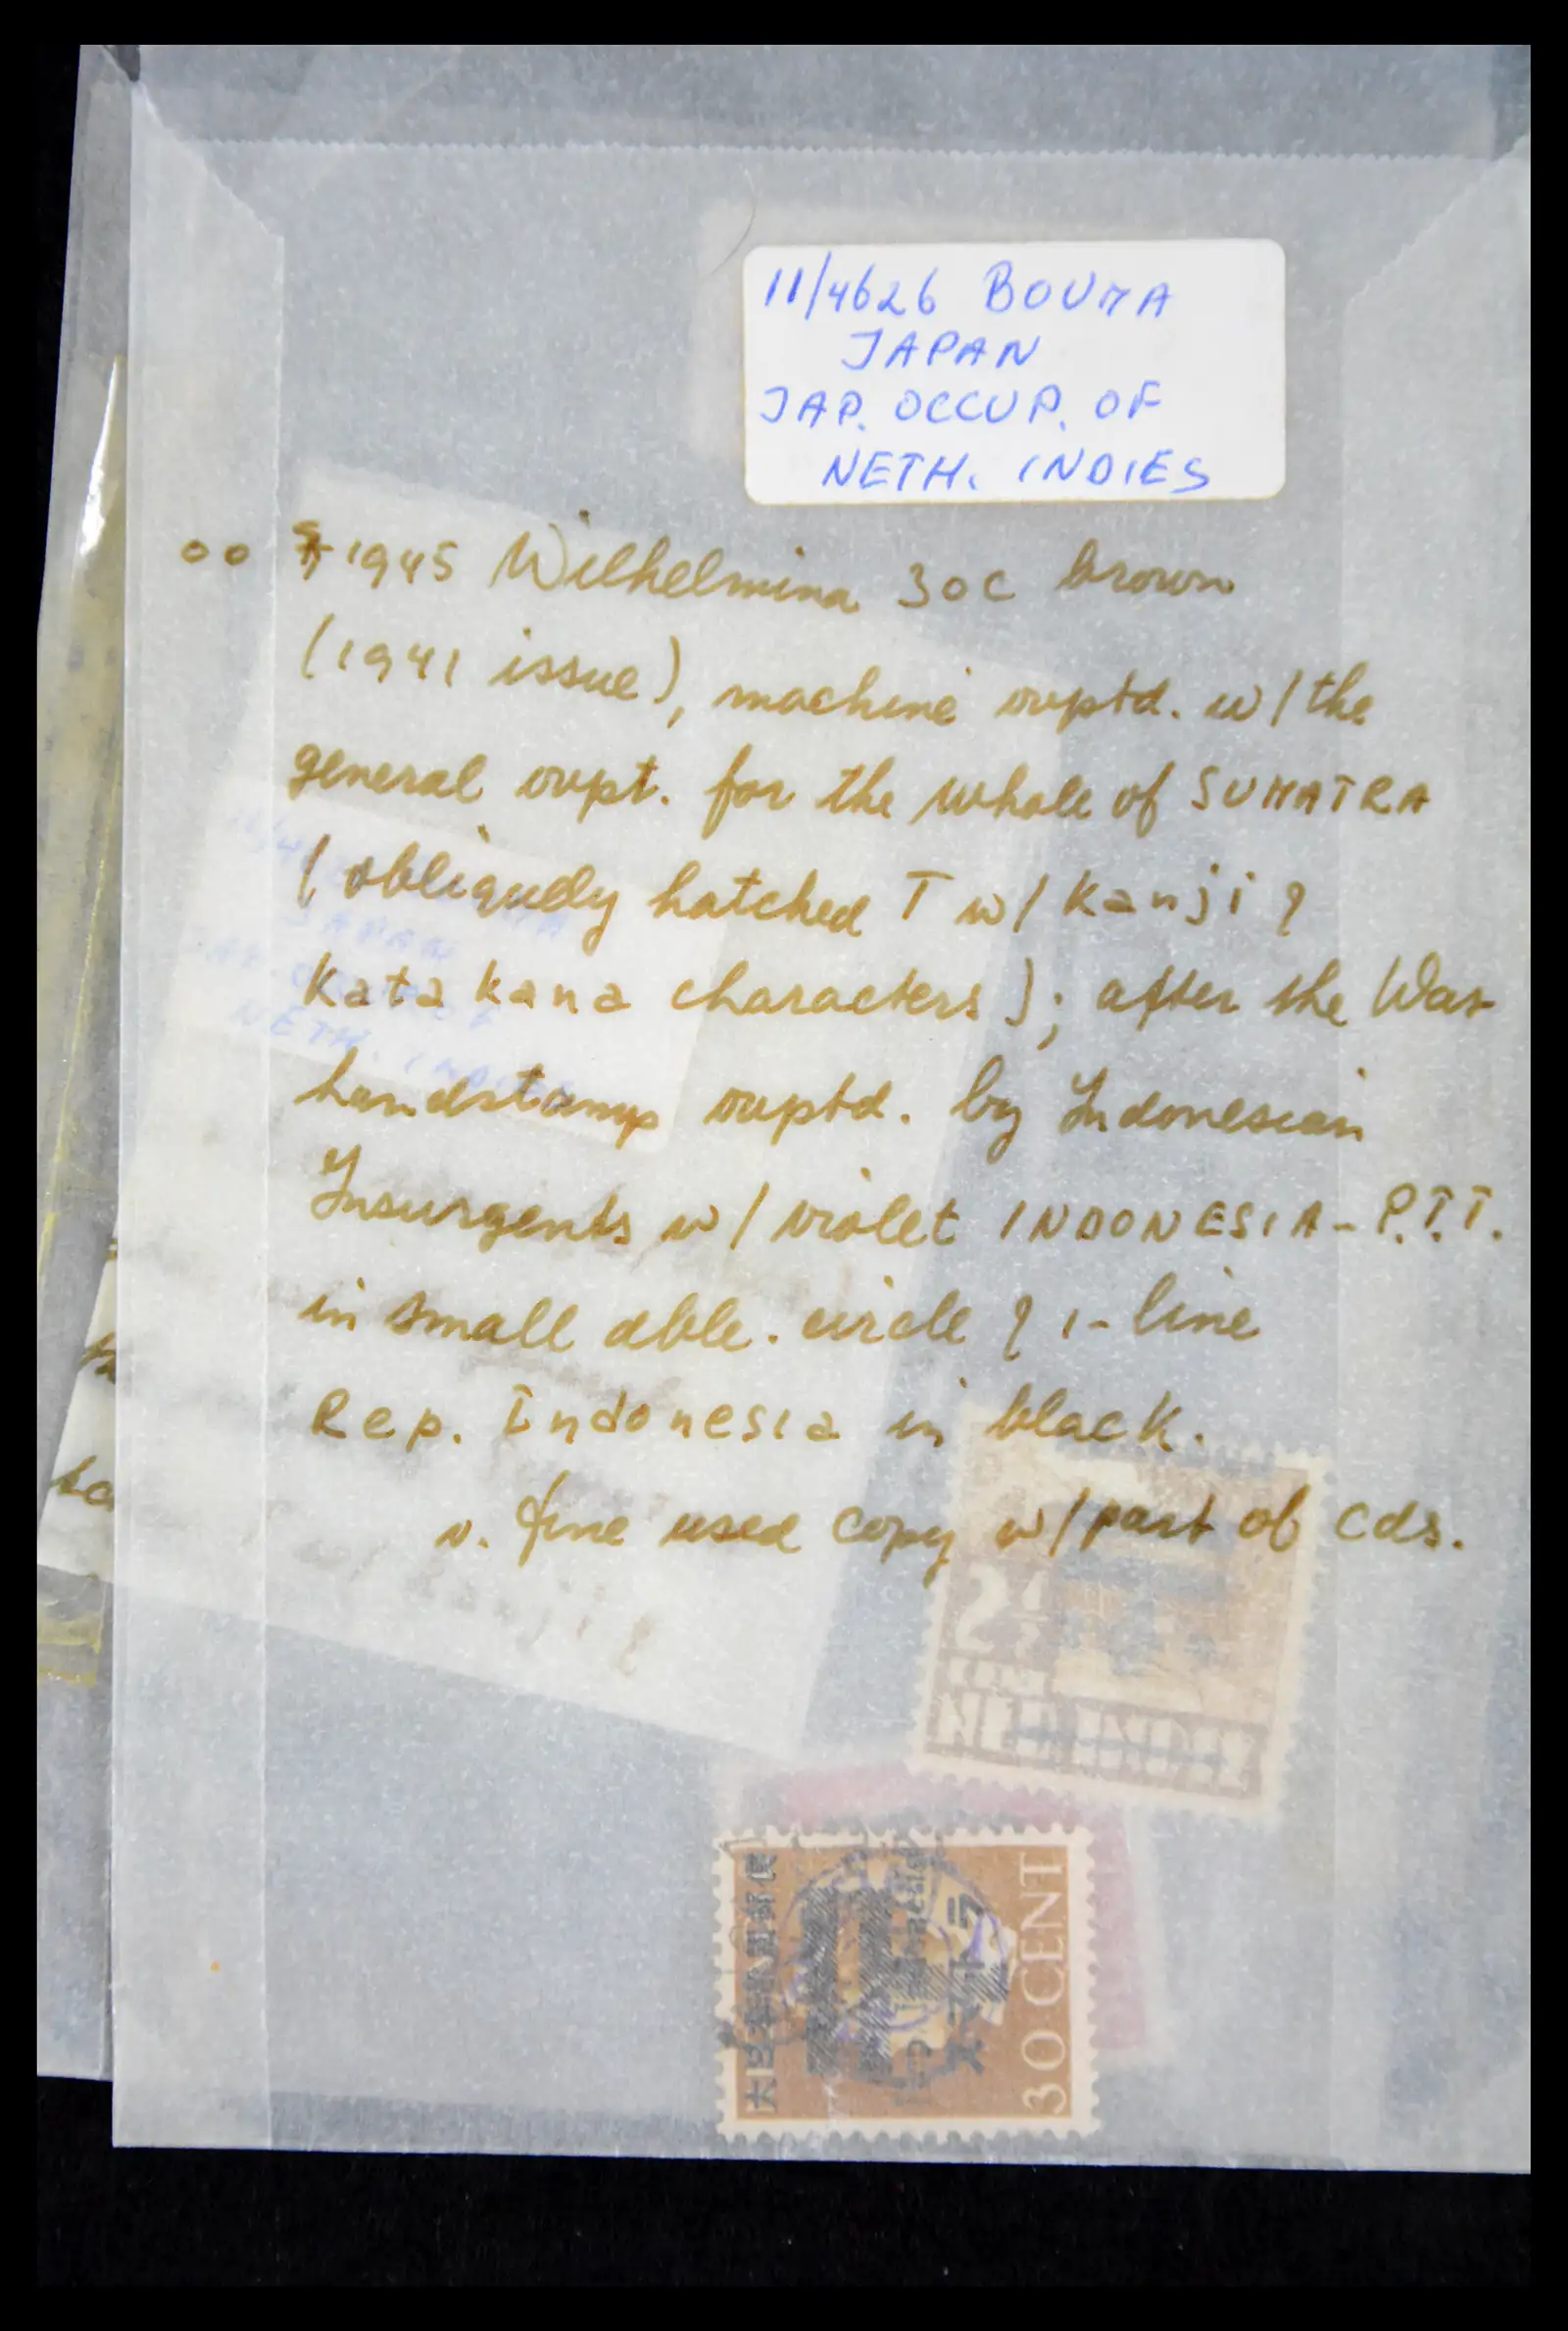 11/4626 BOUMA
JAPAN
JAP. OCCUP. OF
NETH. INDIES
oo 1945 Wilhelmina 30c brown
(1941 issue), machine ovptd. w/ the
general ovpt. for the whole of SUMATRA
(obliquely hatched T w/ kanji &
Katakana characters); after the War
handstamp ovptd. by Indonesian
Insurgents w/ violet INDONESIA-P.T.T.
in small dble. circle & 1-line
Rep. Indonesia in black.
v. fine used copy w/ part of cds.
JAPAN
NETH. INDIES
kanji &
2½
CENT
NED. INDIE
大日本帝国郵便
スマトラ
30 CENT